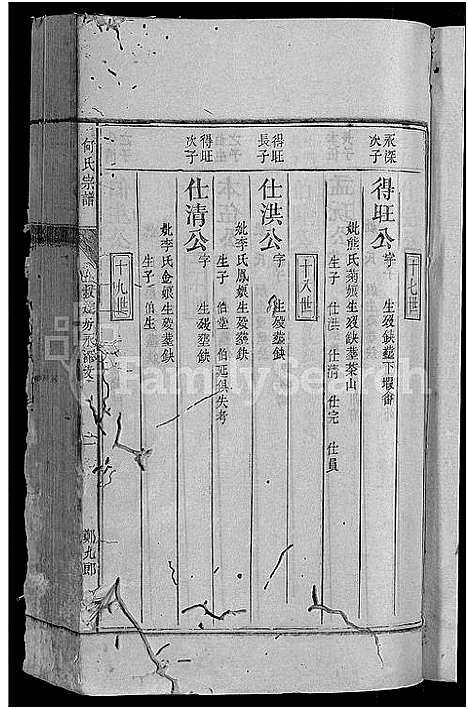 十七世
永深次子
得旺公 字 生歿缺葬下塅畬
妣熊氏菊娘生歿缺葬茶山
生子 仕洪 仕清 仕完 仕員
十八世
得旺長子
仕洪公 字 生歿葬缺
妣李氏鳳娘生歿葬缺
生子 伯堂 伯延俱失考
得旺次子
仕清公 字 生歿葬缺
妣李氏金娘生歿葬缺
生子 伯生
十九世
何氏宗譜
鄭九郎
FamilySearch